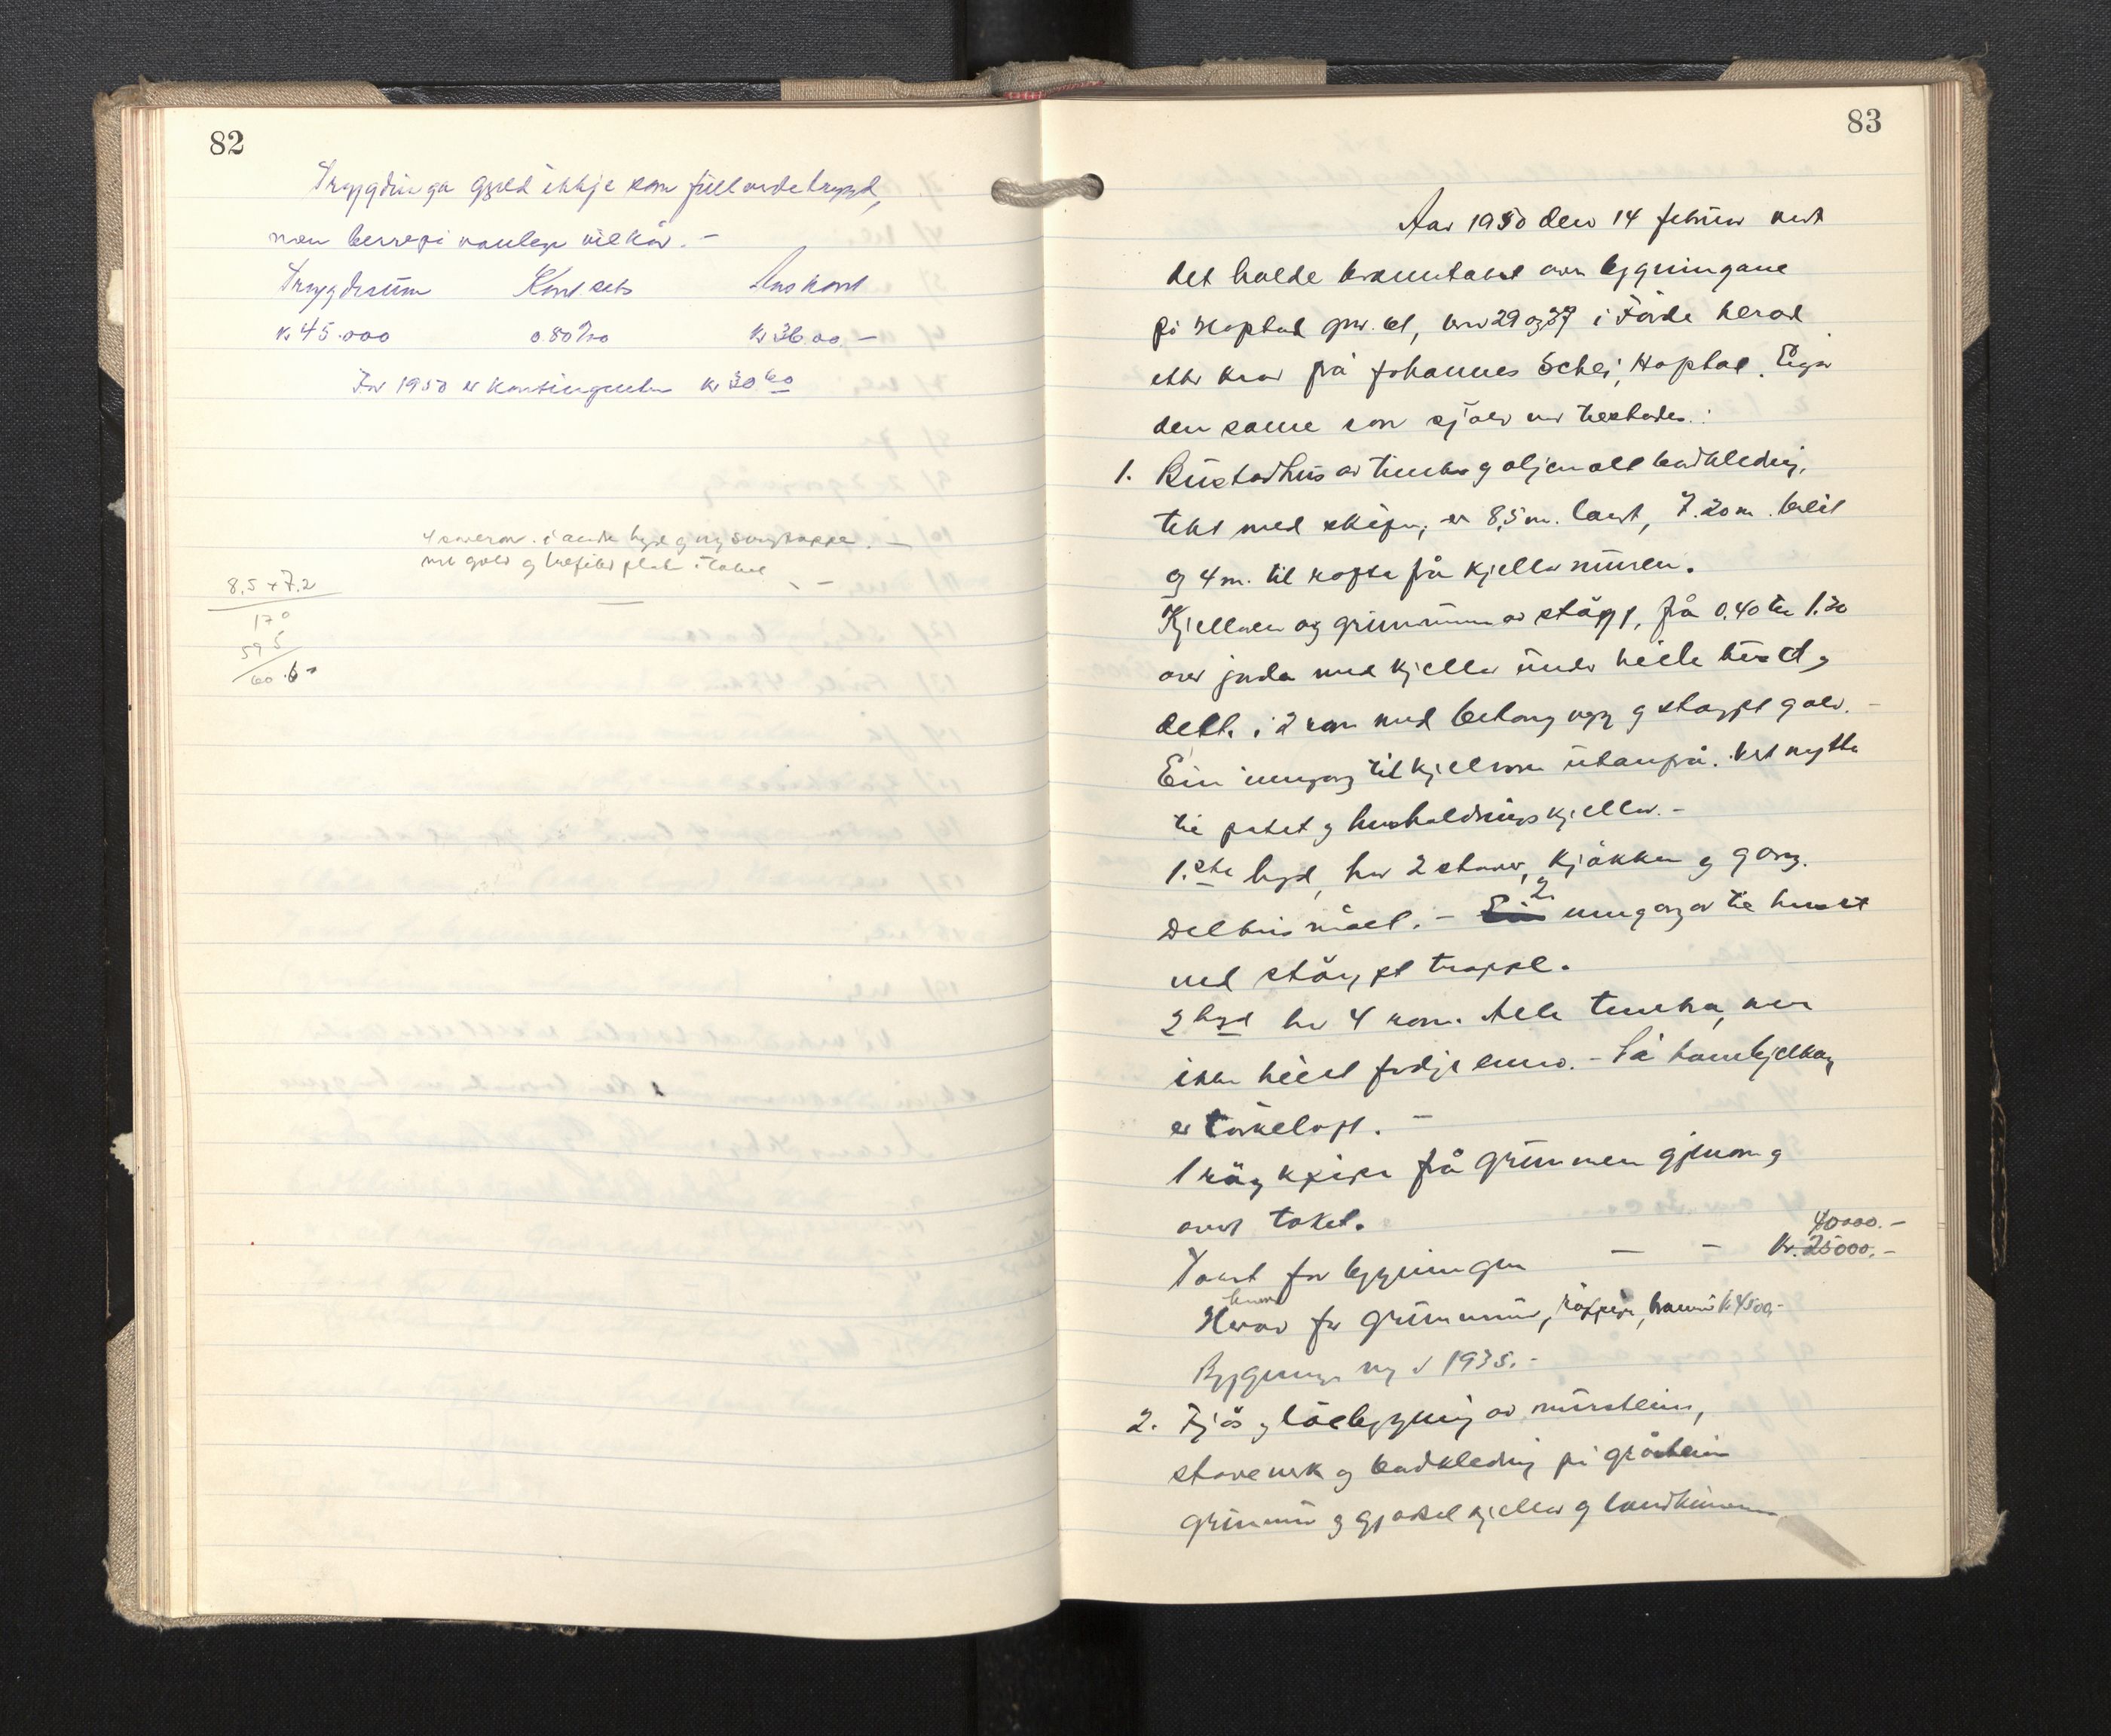 82
Trygdinga gjeld ikkje som fullverdetrygd,
men berre på vanlege vilkår. -
Trygdesum Kont sats Aarskont
kr 45.000 0.80‰ kr 36.00.-
For 1950 er kontingenten kr 30 60
4 soverom i andre høgd og ny trappe. -
golv og trefiber plater i taket
8,5 x 7.2
170
595
60.60
83
Aar 1950 den 14 februar vart
det halde branntakst over bygningane
på Hoptal gnr. 61, bnr 29 og 37 i Førde herad
etter krav frå Johannes Schei, Hoptal. Eigar
den same som sjølv var tilstades.
1. Büstadhus av timber og oljemalt bordkledning,
tekt med skifer, er 8,5 m. langt, 7.20 m. breit
og 4 m. til røste frå kjellarmuren.
Kjellaren og grunnmur av støypt, frå 0,40 til 1.20
over jorda med kjellar under heile huset og
delt i 2 rom med betong vegg og støypt golv. -
Ein inngang til kjellaren utanfrå. Vert nytta
til potet og husholdningskjellar. -
1.ste høgd, har 2 stover, kjøkken og gang.
Delvis målt. - 2 inngangar til huset
med støypt trappe.
2 høgd har 4 rom. Alle timbra, men
ikkje heilt ferdige enno. - På hanebjelkane
er tørkeloft. -
1 røykpipe frå grunnen gjenom og
over taket.
40000.-
Takst for bygningen - - kr. 25000.-
Herav for grunnmur, røykpipe, brannmur kr 4500,-
Bygningen ny i 1935. -
2. Fjøs og løebygning av mürstein,
stavverk og bordkledning på gråstein
grunnmur og gjødselkjellar og landkummer